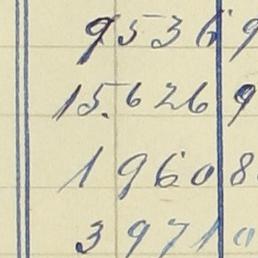 9536 9
15.626 9
1960 8
3971 0